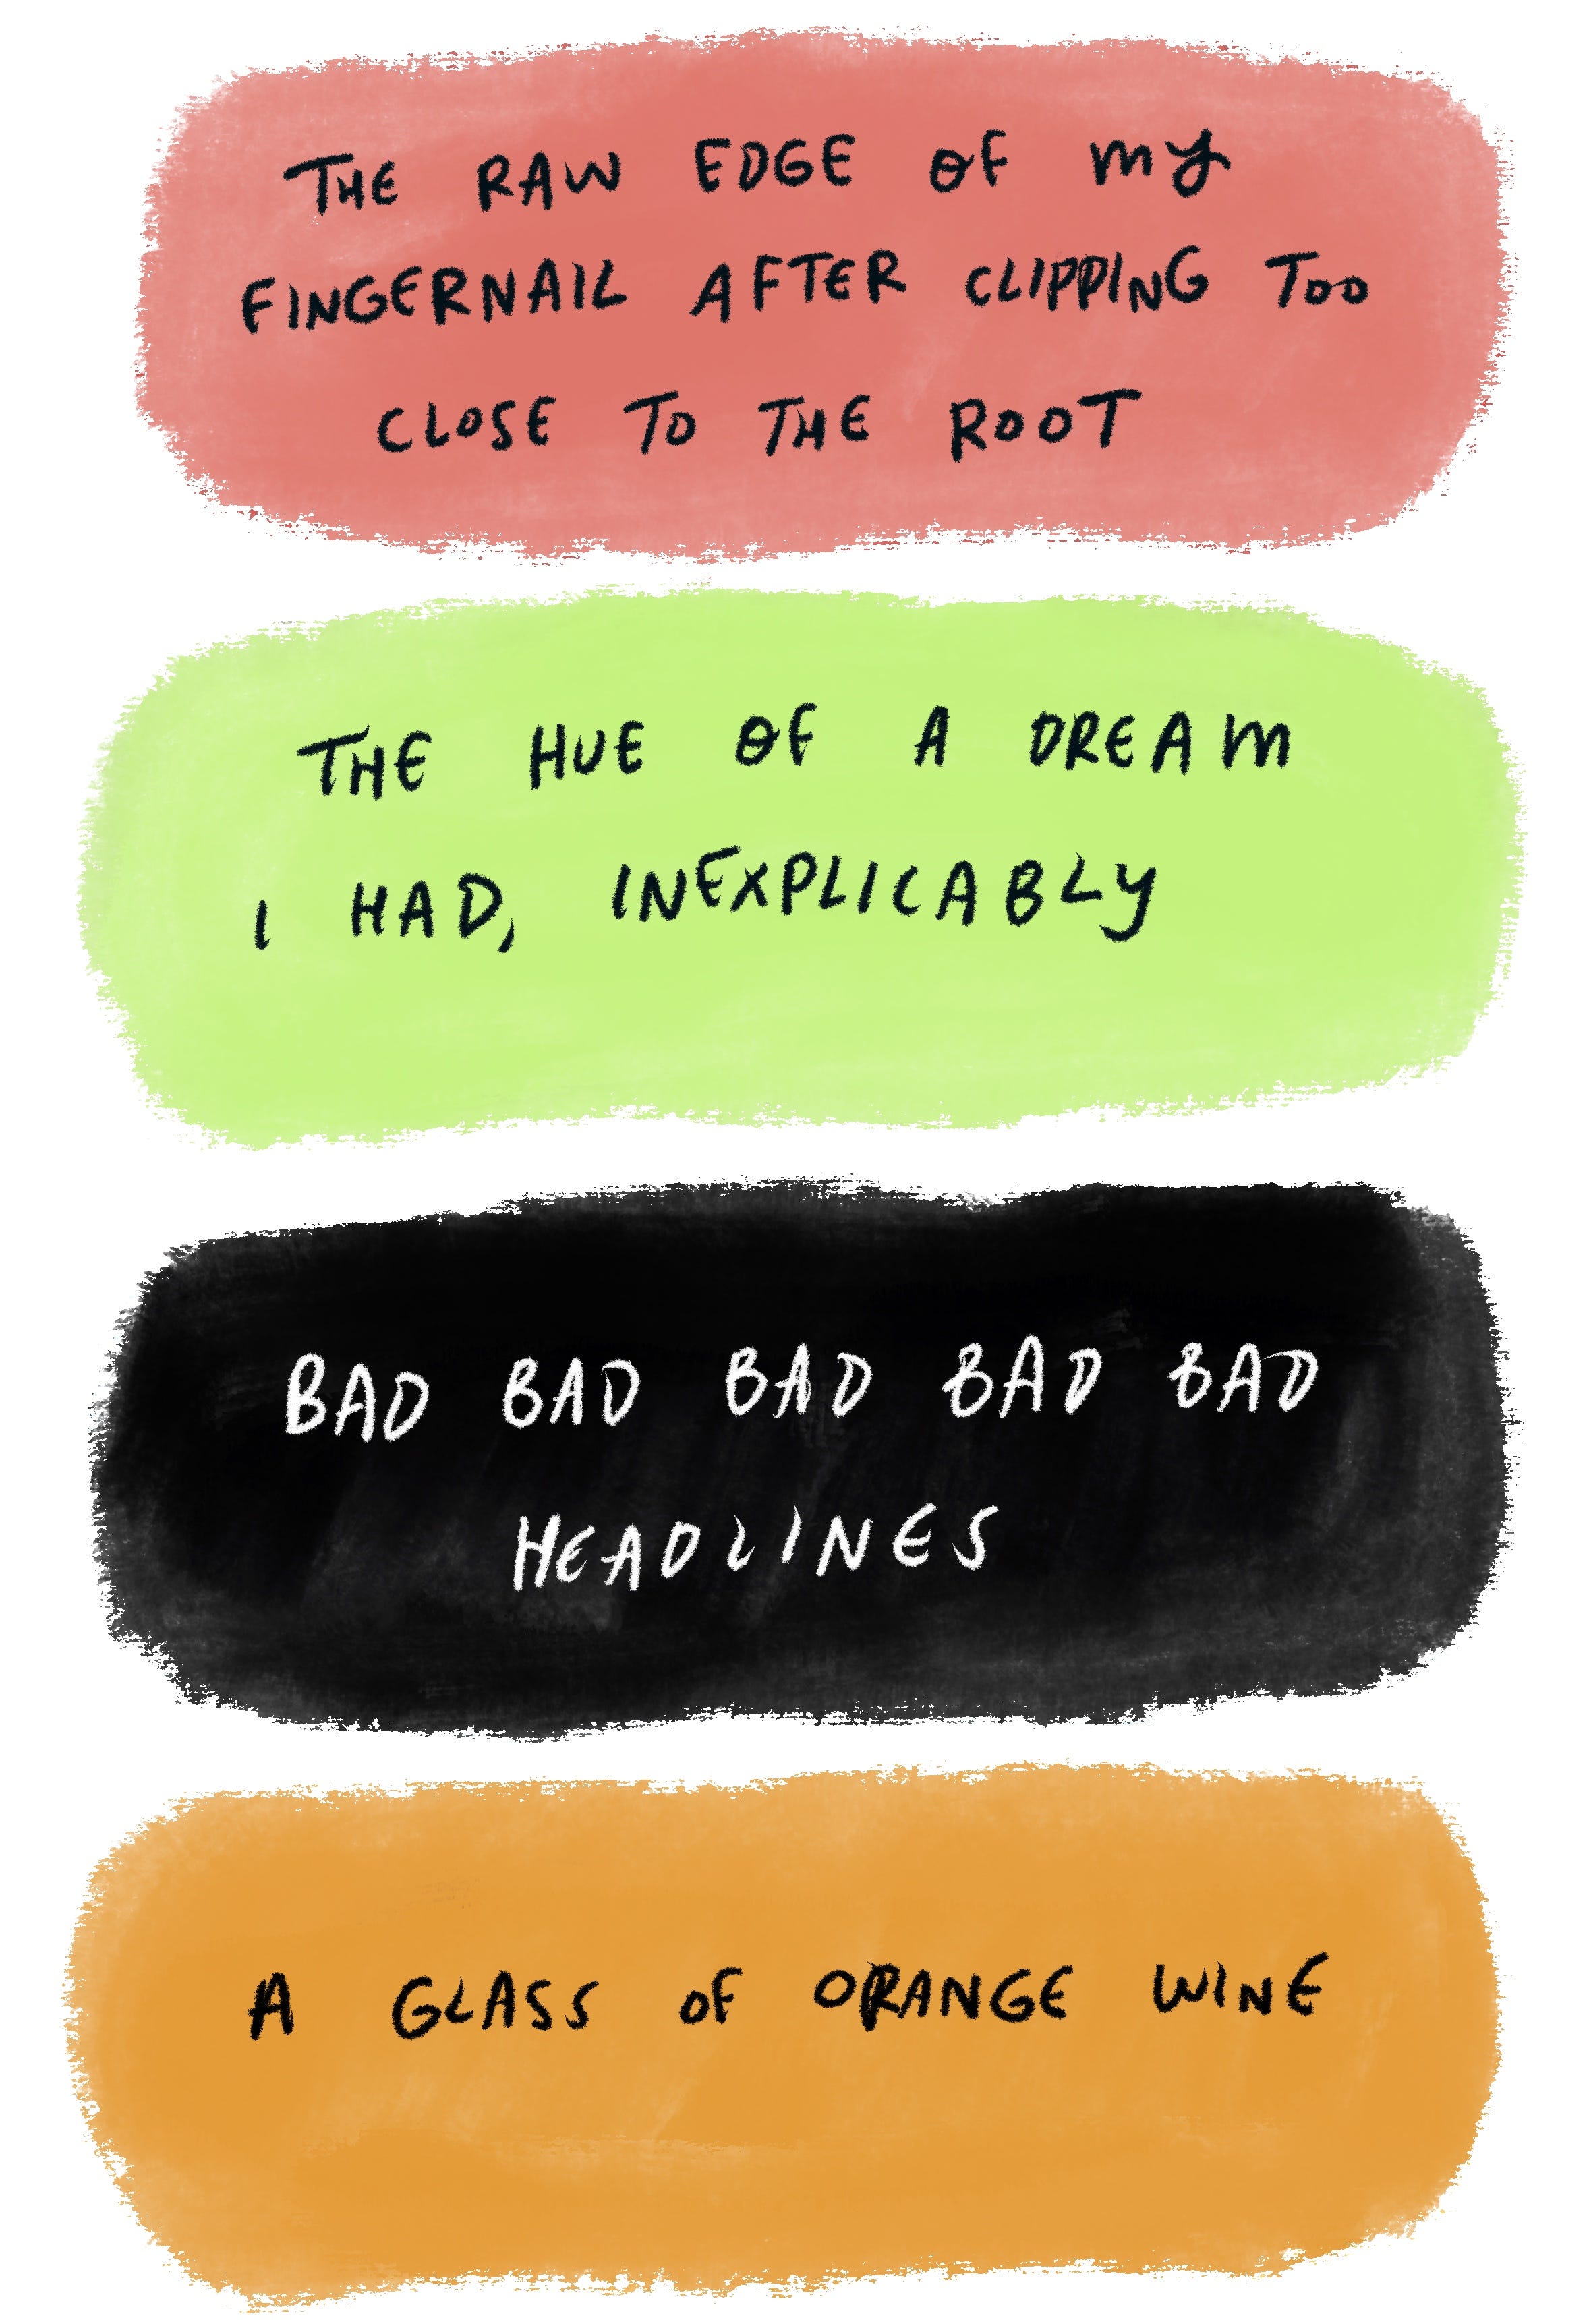 THE RAW EDGE OF MY
FINGERNAIL AFTER CLIPPING TOO
CLOSE TO THE ROOT
THE HUE OF A DREAM
I HAD, INEXPLICABLY
BAD BAD BAD BAD BAD
HEADLINES
A GLASS OF ORANGE WINE